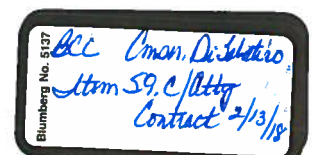 Blumberg No. 5137
BCC Cmsn. DiSabatino
Item 59. C/Atty
Contract 2/13/18